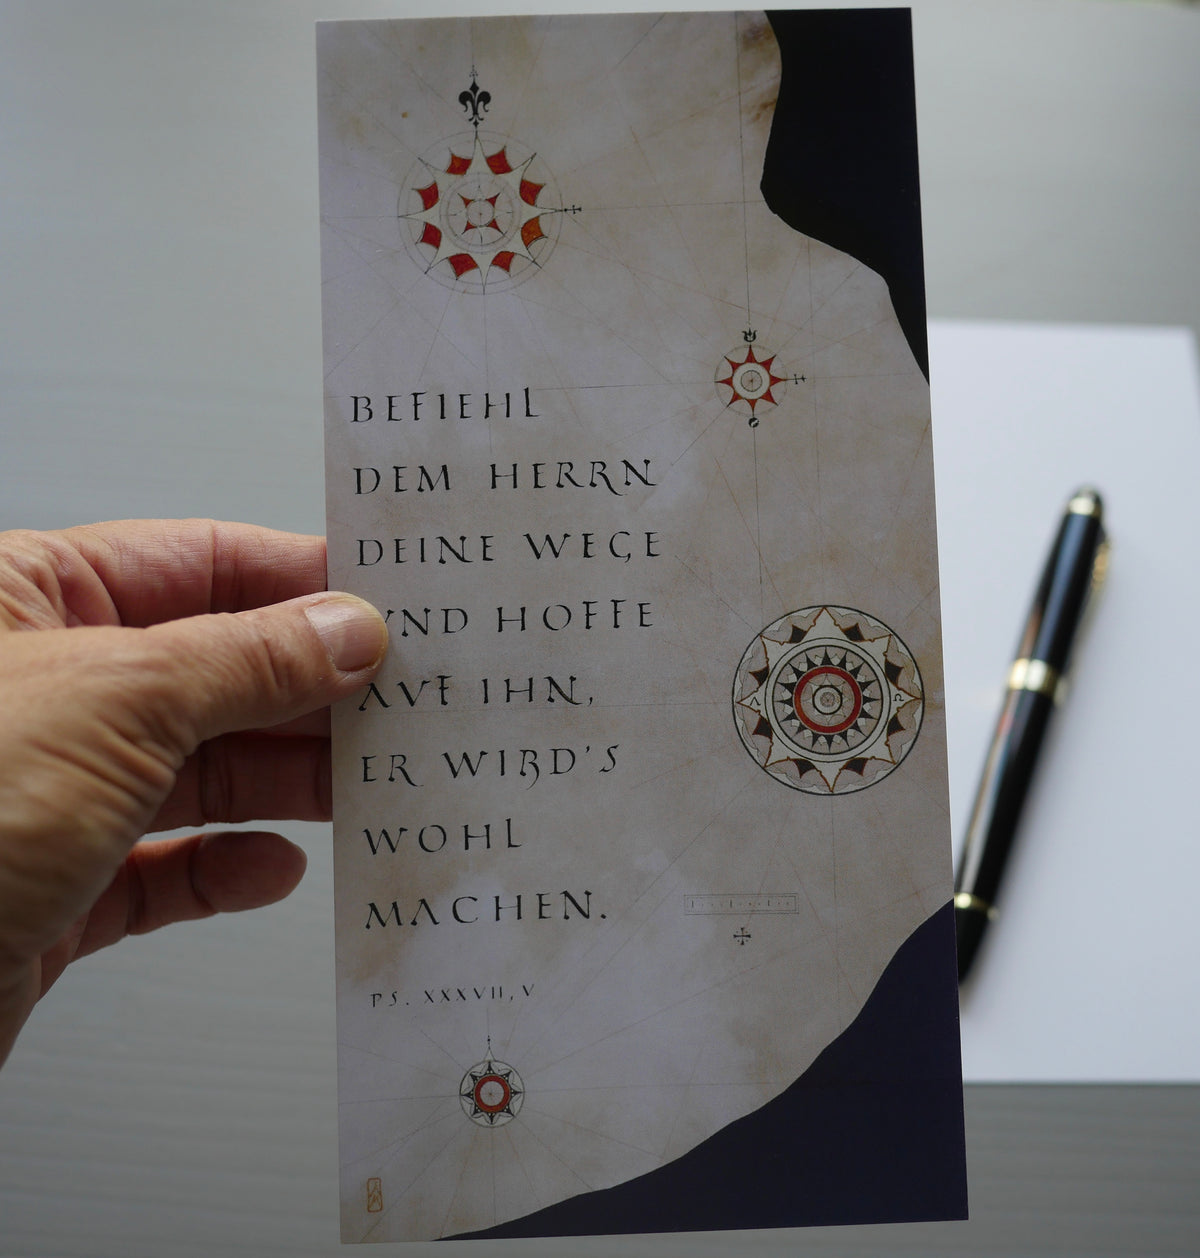 BEFIEHL
DEM HERRN
DEINE WEGE
VND HOFFE
AVF IHN,
ER WIRD'S
WOHL
MACHEN.
PS. XXXVII, V